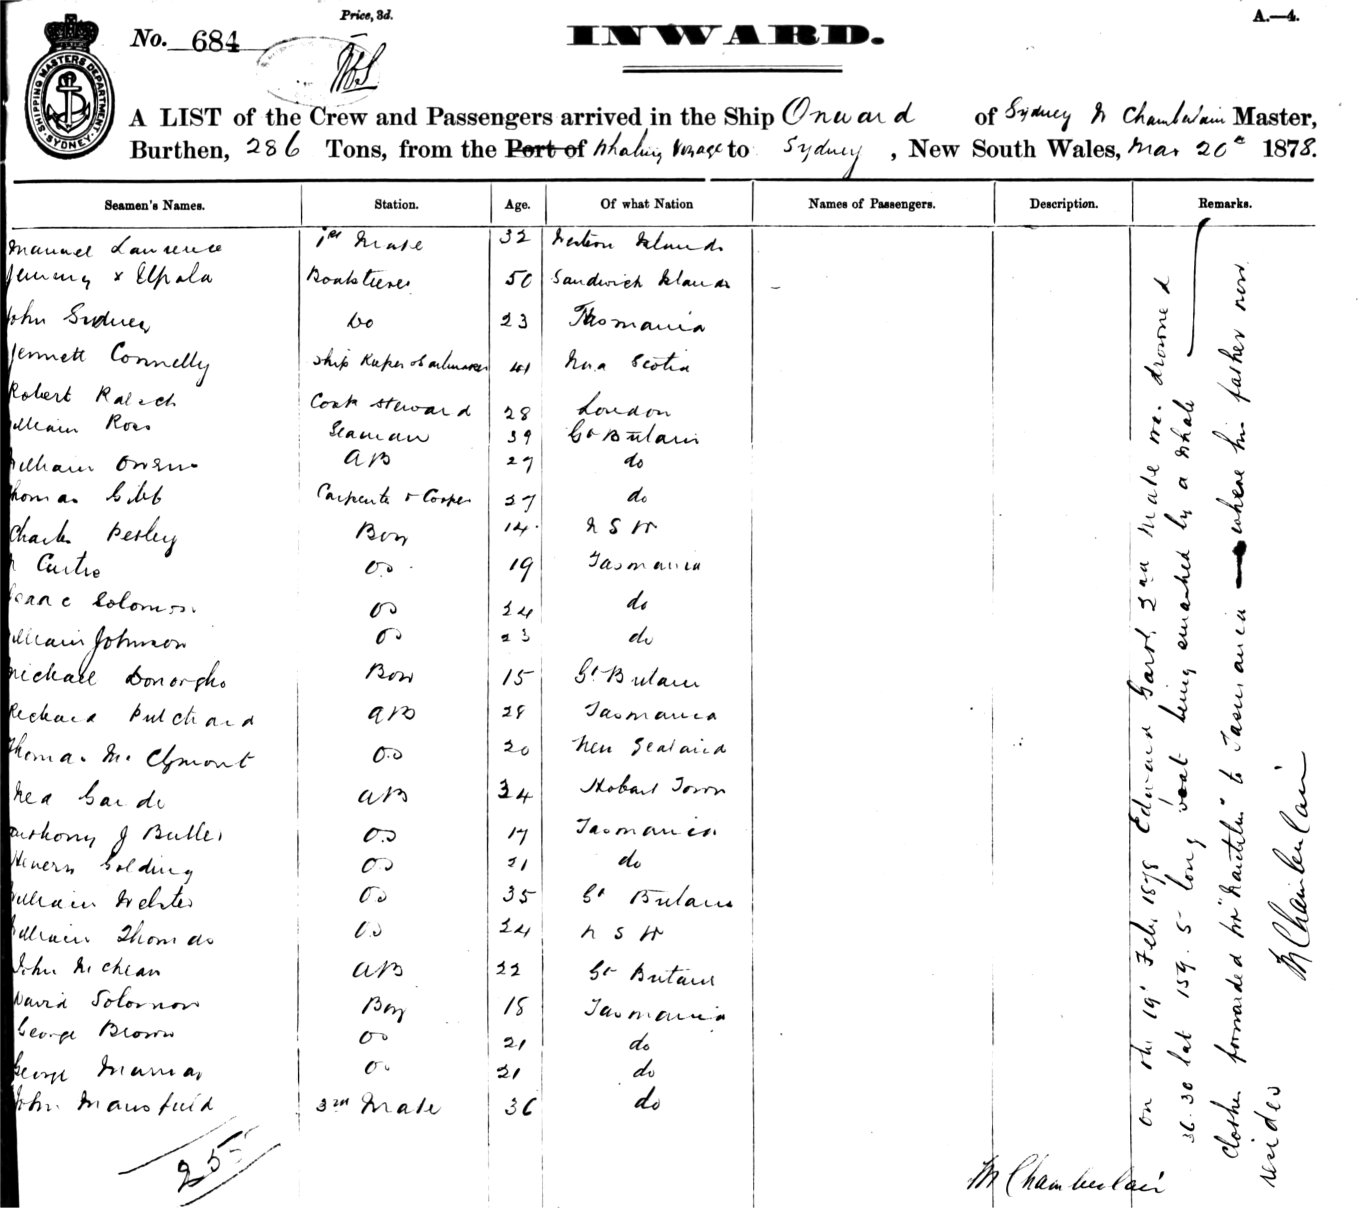 Price, 3d.
A.—4.
No. 684
INWARD.
SHIPPING MASTERS DEPARTMENT SYDNEY
A LIST of the Crew and Passengers arrived in the Ship Onward of Sydney M Chamberlain Master,
Burthen, 286 Tons, from the Port of Whaling Voyage to Sydney, New South Wales, Mar 20th 1878.
Seamen's Names. Station. Age. Of what Nation Names of Passengers. Description. Remarks.
Manuel Laurence 1st Mate 32 Western Islands
Jemmy x 50 Sandwich Islands
John Sydney Do 23 Tasmania
Connelly Ship Keeper & Sailmaker 41 Nova Scotia
Robert Cook Steward 28 London
William Ross Seaman 39 Gt Britain
William Owens AB 27 do
Thomas Gibb Carpenter & Cooper 27 do
Charles Boy 14 N S W
Curtis OS 19 Tasmania
Isaac Solomon OS 24 do
William Johnson OS 23 do
Michael Donorgho Boy 15 Gt Britain
Richard Pritchard AB 28 Tasmania
Thomas McClymont OS 20 New Zealand
AB 34 Hobart Town
Anthony J Butler OS 17 Tasmania
Henery Golding OS 21 do
William Webster OS 35 Gt Britain
William Thomas OS 24 N S W
John AB 22 Gt Britain
David Solomon Boy 18 Tasmania
George Brown OS 21 do
George OS 21 do
John Mansfield 3rd Mate 36 do
25
M Chamberlain
on the 19th Feb. 1878 Edward 2nd Mate was drowned
36.30 lat 159.5 long boat being smashed by a whale
clothes forwarded to Tasmania where his father now
resides M Chamberlain